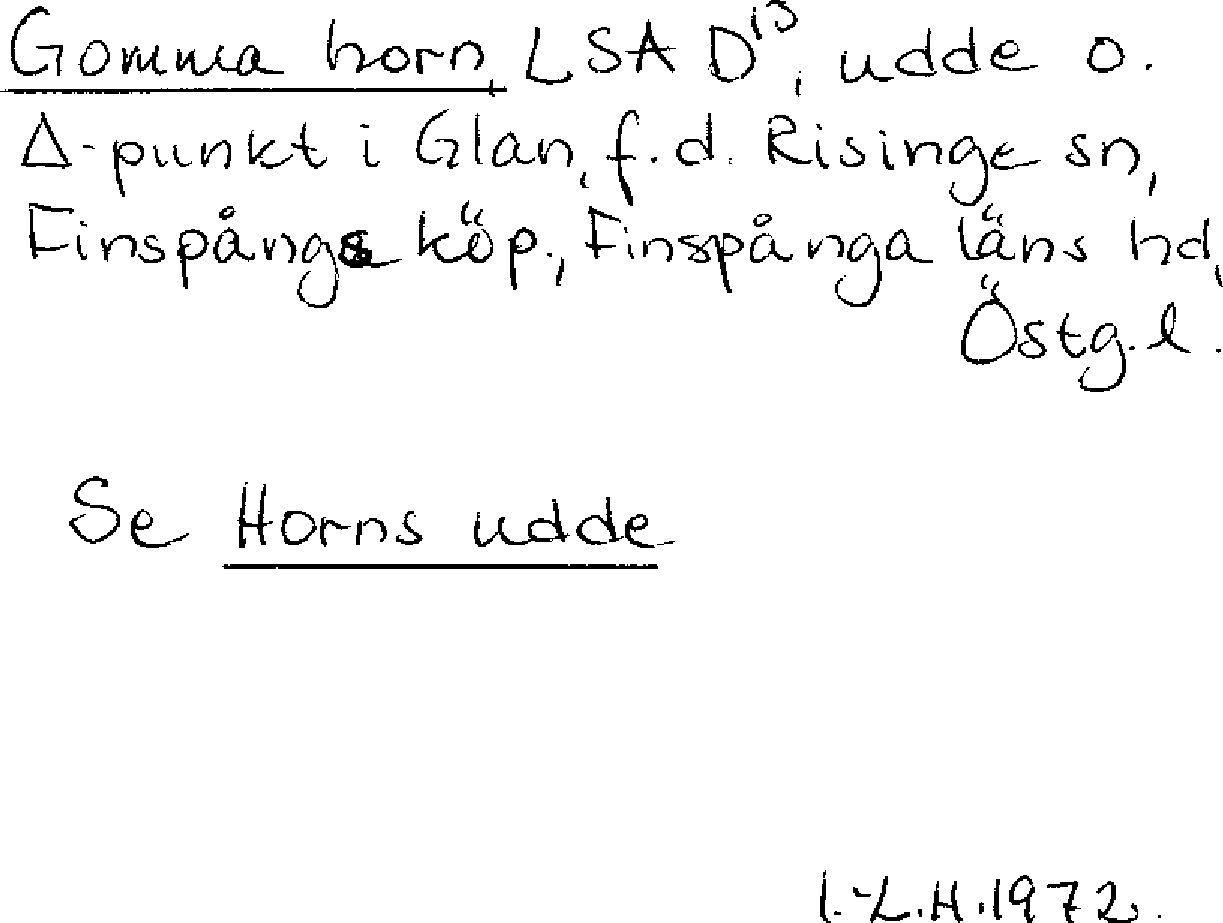 Gomma horn, LSA D¹³, udde o.
Δ-punkt i Glan, f.d. Risinge sn,
Finspångs köp., Finspånga läns hd,
Östg.l.
Se Horns udde
I.-L.H.1972.